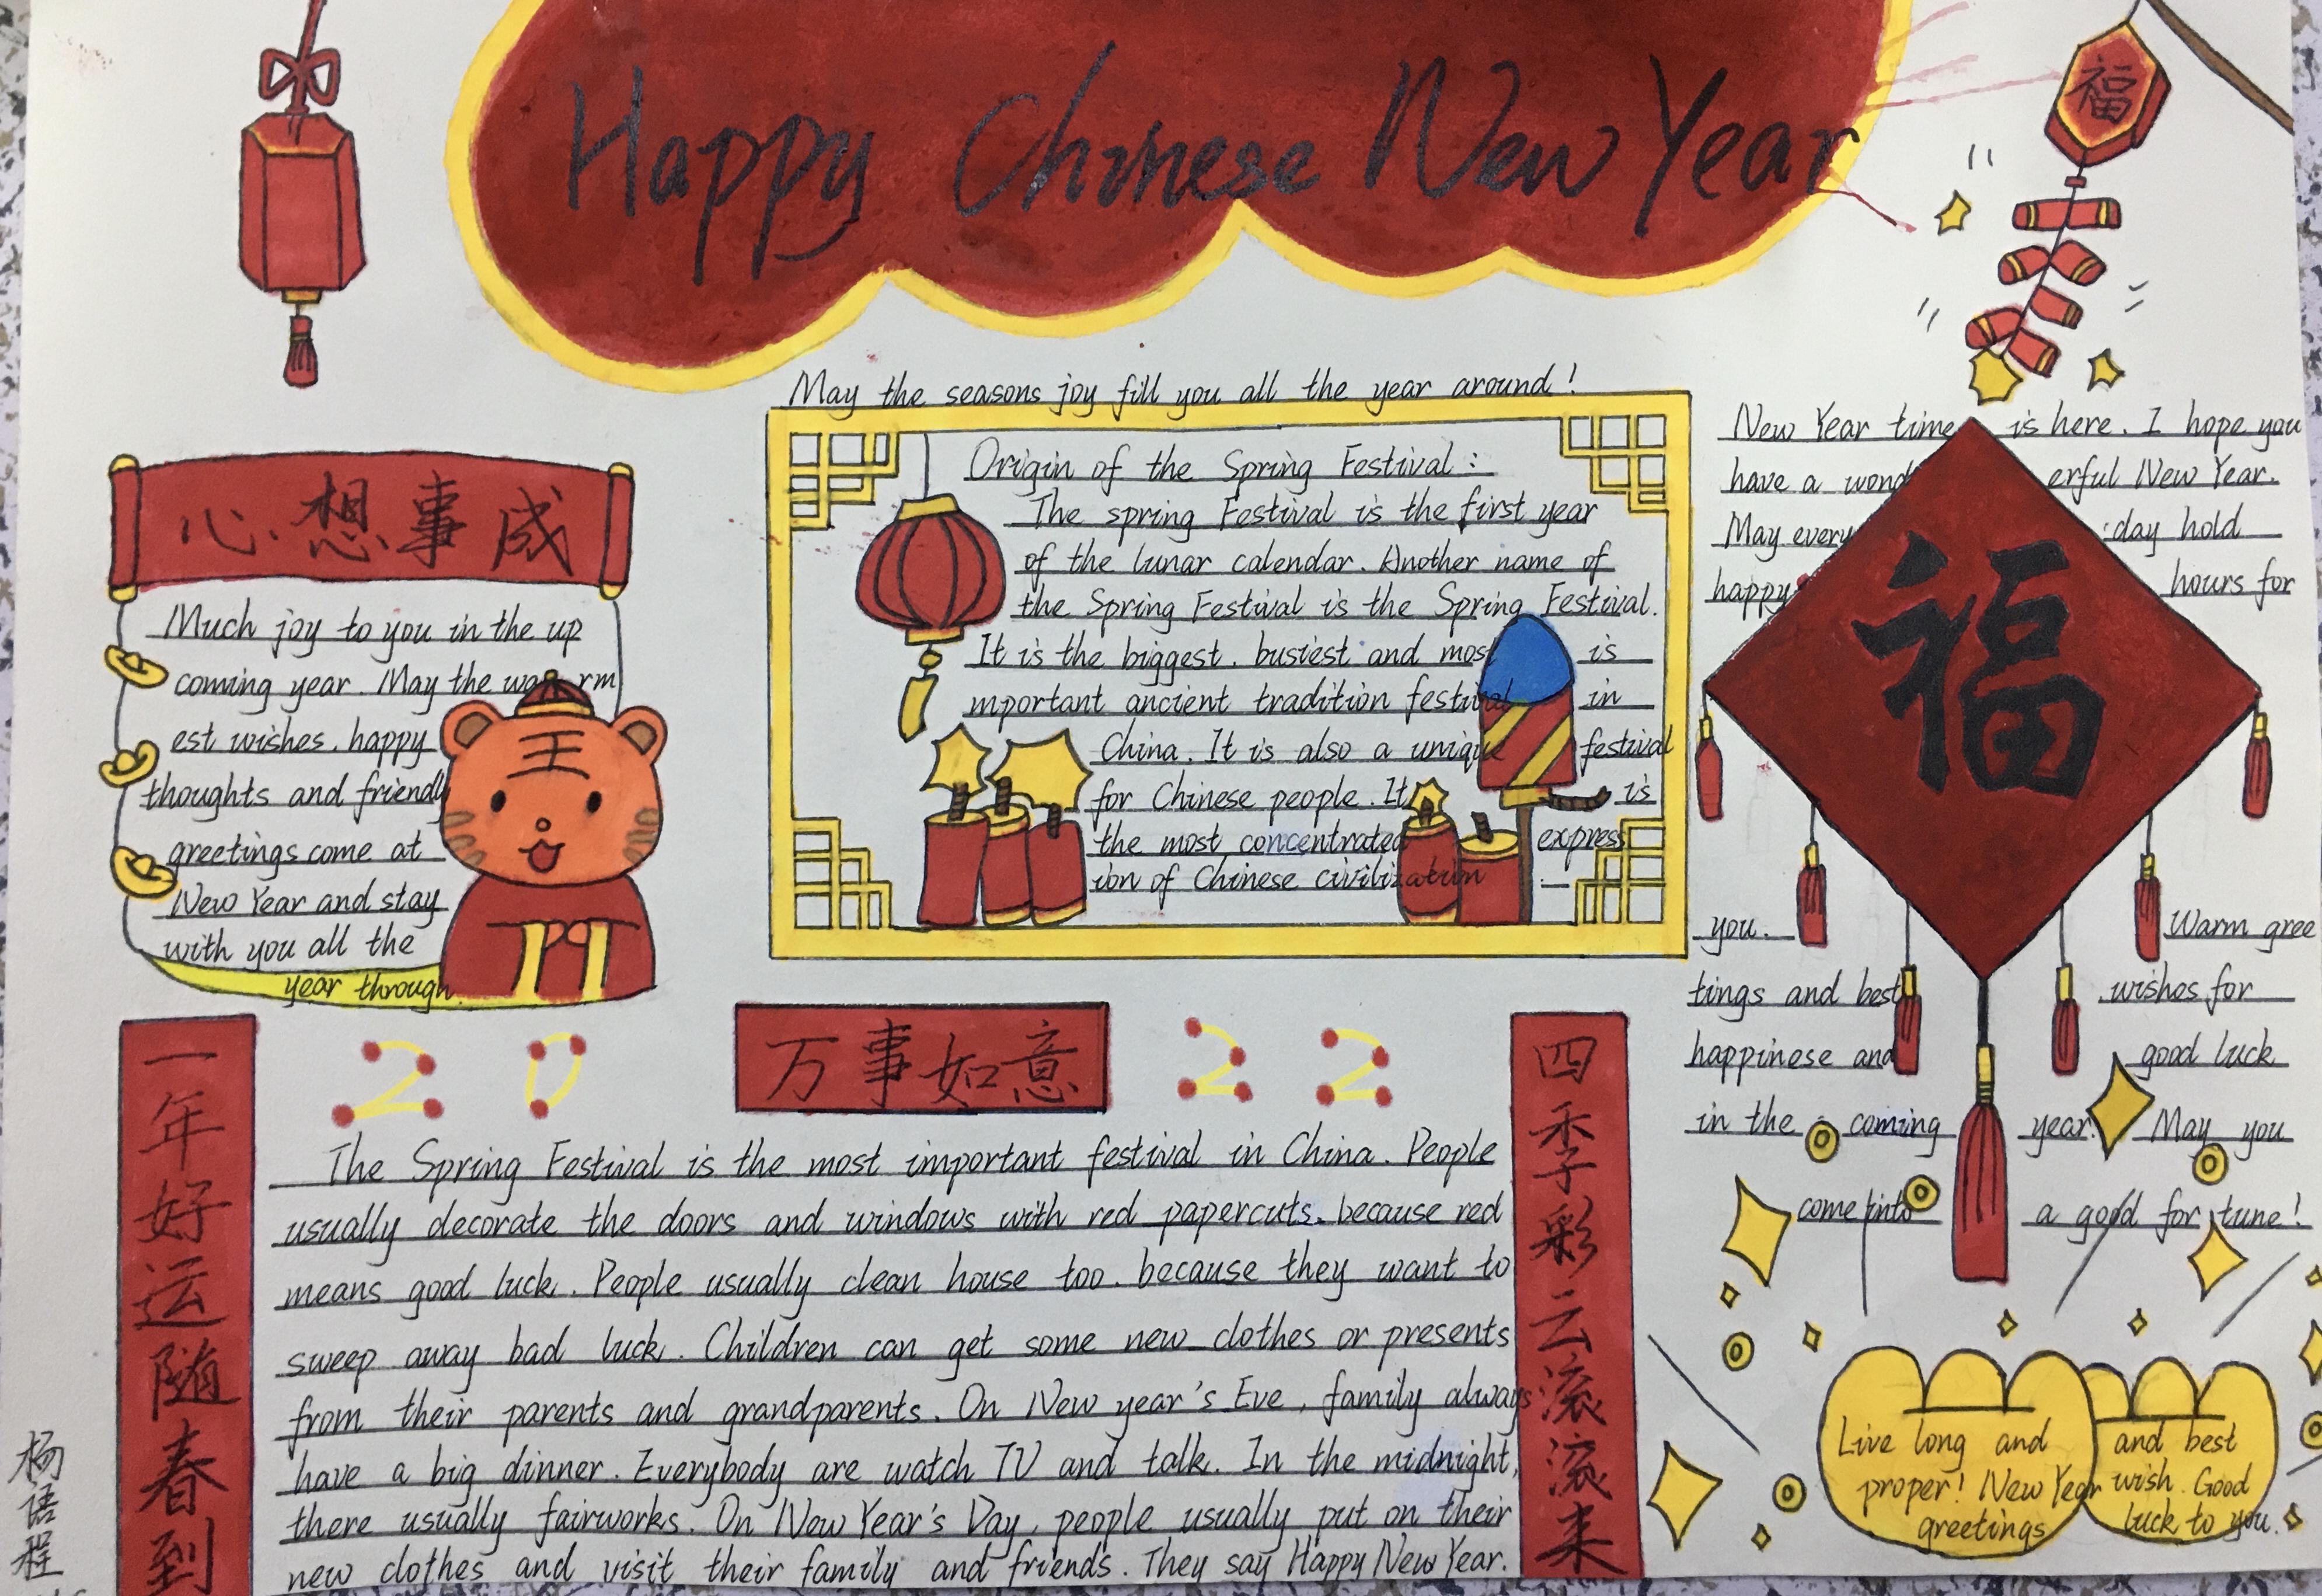 Happy Chinese New Year
福
May the seasons joy fill you all the year around!
心想事成
Much joy to you in the up
coming year. May the wa rm
est wishes, happy
thoughts and friendly
greetings come at
New Year and stay
with you all the
year through.
Origin of the Spring Festival:
The spring Festival is the first year
of the lunar calendar. Another name of
the Spring Festival is the Spring Festival.
It is the biggest, busiest and most is
mportant ancient tradition festival in
China. It is also a unique festival
for Chinese people. It is
the most concentrated express
ion of Chinese civilization
New Year time is here. I hope you
have a wond erful New Year.
May every day hold
happy hours for
福
you. Warm gree
tings and best wishes for
happinese and good luck
in the coming year. May you
come into a good for tune!
一年好运随春到
20
万事如意
22
四季彩云滚滚来
The Spring Festival is the most important festival in China. People
usually decorate the doors and windows with red papercuts. because red
means good luck. People usually clean house too. because they want to
sweep away bad luck. Children can get some new clothes or presents
from their parents and grandparents. On New year's Eve, family always
have a big dinner. Everybody are watch TV and talk. In the midnight,
there usually fairworks. On New Year's Day, people usually put on their
new clothes and visit their family and friends. They say Happy New Year.
Live long and
proper! New Year
greetings
and best
wish. Good
luck to you.
杨语程